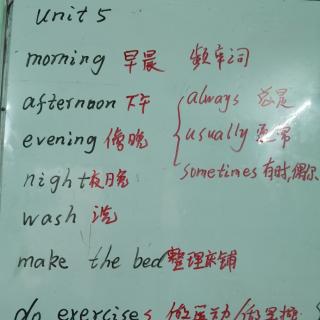 unit 5
morning 早晨 频率词
afternoon 下午 always 总是
evening 傍晚 usually 通常
sometimes 有时,偶尔
night 夜晚
wash 洗
make the bed 整理床铺
do exercises 做运动/做早操